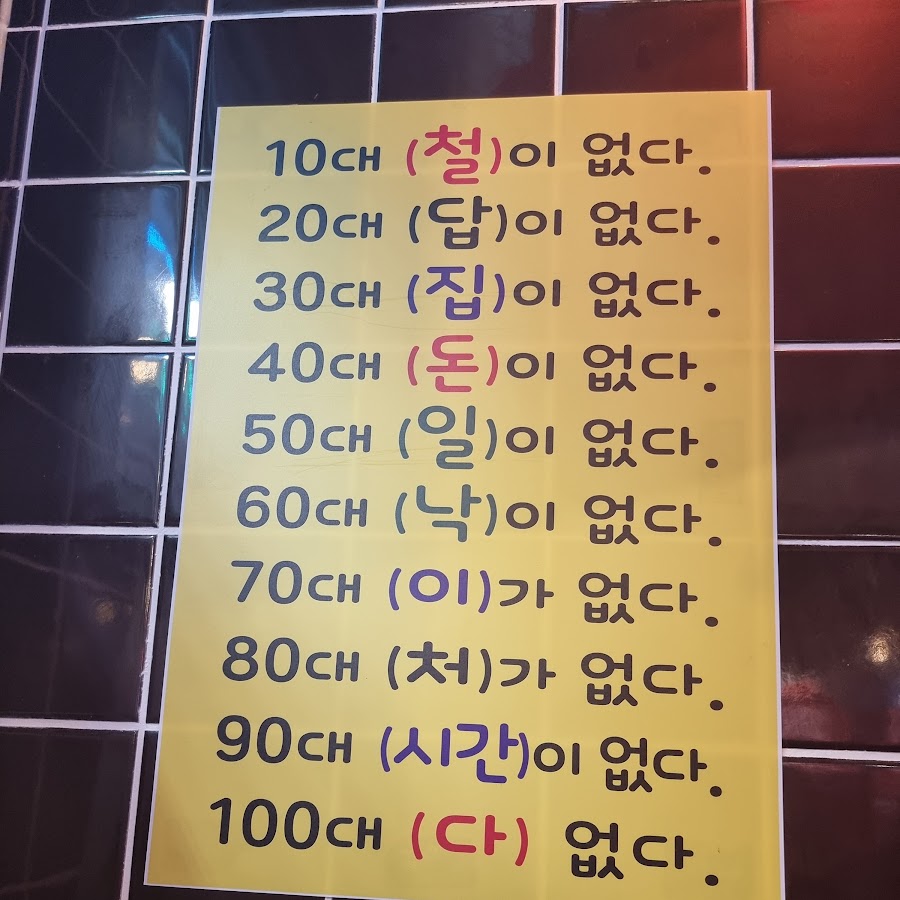 10대 (철)이 없다.
20대 (답)이 없다.
30대 (집)이 없다.
40대 (돈)이 없다.
50대 (일)이 없다.
60대 (낙)이 없다.
70대 (이)가 없다.
80대 (처)가 없다.
90대 (시간)이 없다.
100대 (다) 없다.